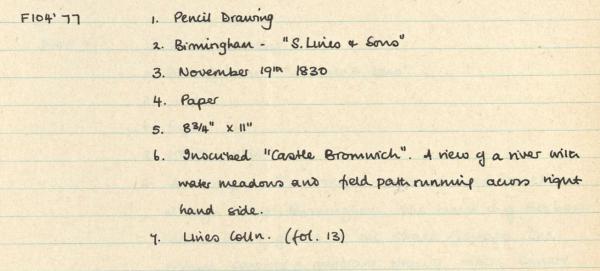 F104'77 1. Pencil Drawing
2. Birmingham - "S. Lines & Sons"
3. November 19th 1830
4. Paper
5. 8 3/4" x 11"
6. Inscribed "Castle Bromwich". A view of a river with
water meadows and field path running across right
hand side.
7. Lines Colln. (fol. 13)